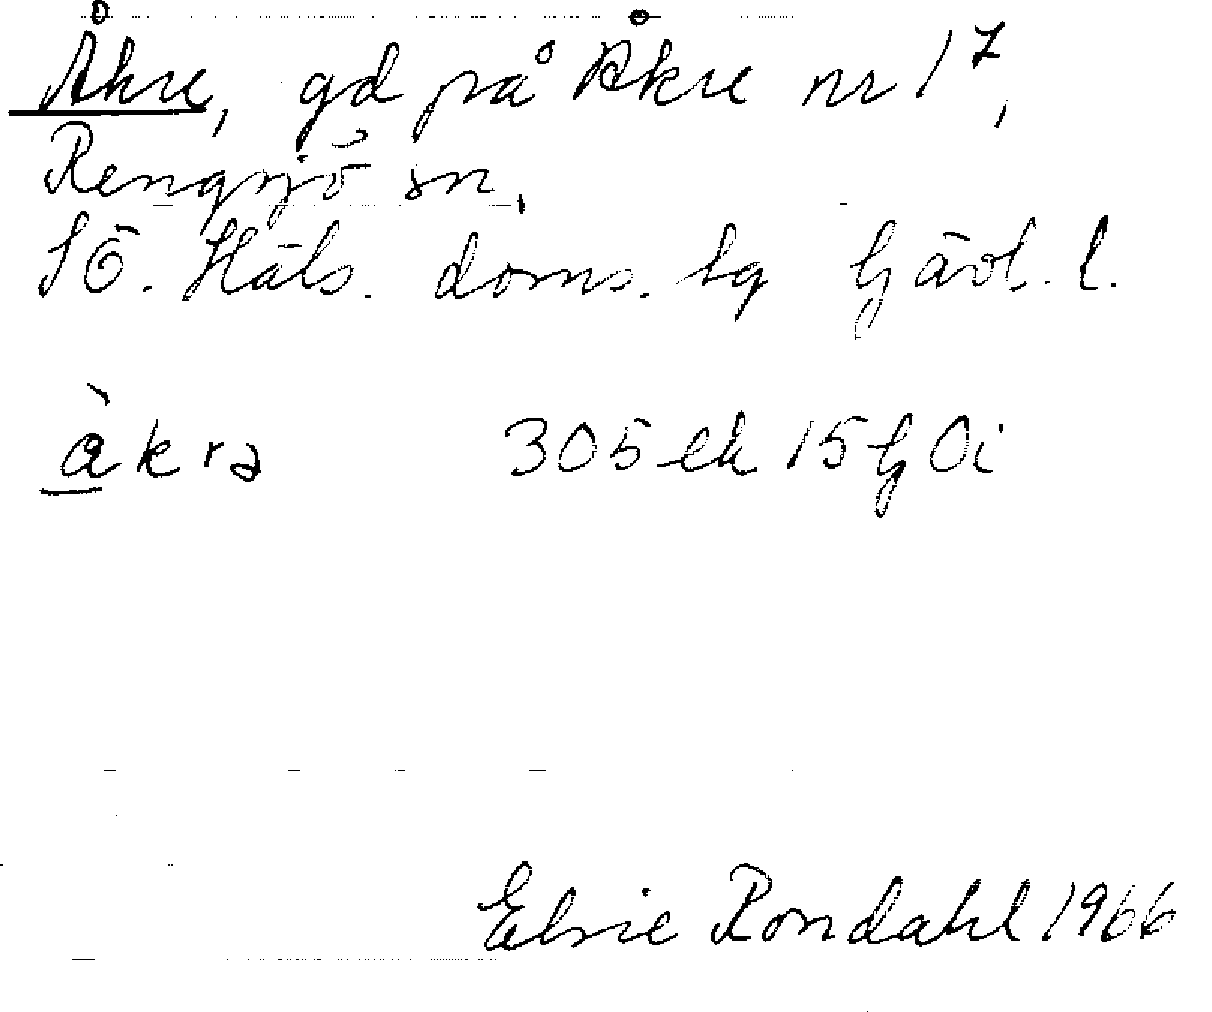 Åkre, gd på Åkre nr 1⁷,
Rengsjö sn,
SÖ. Häls. doms. tg Gävl. l.
àkrə 305 ek 15 G 0i
Elsie Rondahl 1966